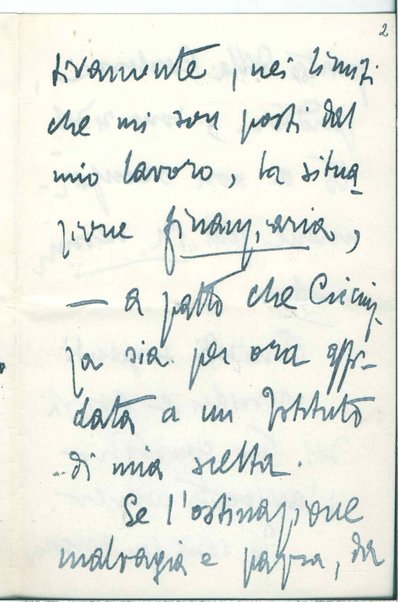 2
tivamente, nei limiti
che mi son posti dal
mio lavoro, la situa-
zione finanziaria,
— a patto che Cicciuz-
za sia per ora affi-
data a un Istituto
di mia scelta.
Se l'ostinazione
malvagia e pazza, da